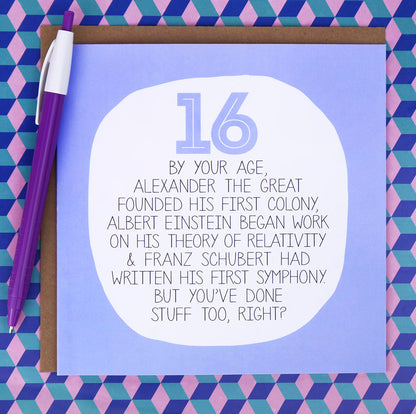 16
BY YOUR AGE,
ALEXANDER THE GREAT
FOUNDED HIS FIRST COLONY,
ALBERT EINSTEIN BEGAN WORK
ON HIS THEORY OF RELATIVITY
& FRANZ SCHUBERT HAD
WRITTEN HIS FIRST SYMPHONY.
BUT YOU'VE DONE
STUFF TOO, RIGHT?